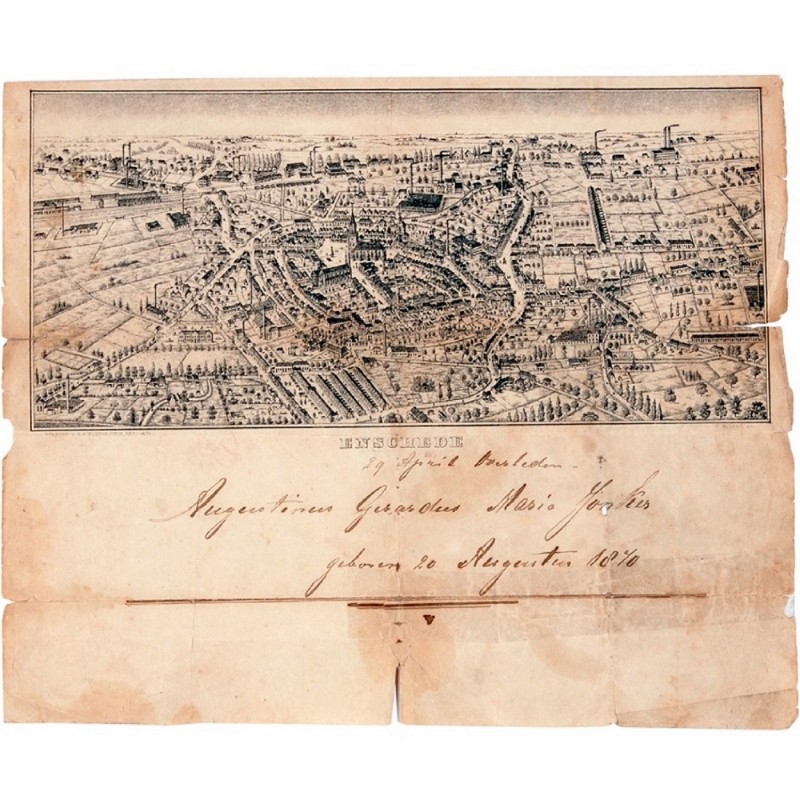 ENSCHEDE
29 April Overleden -
Augustinus Girardus Maria Jonker
geboren 20 Augustus 1870